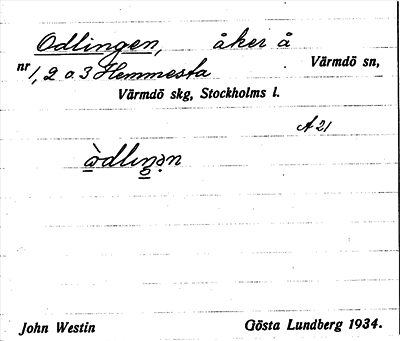 Odlingen, åker å
nr 1, 2 o 3 Hemmesta Värmdö sn,
Värmdö skg, Stockholms l.
A 21
òdlıŋən
John Westin Gösta Lundberg 1934.